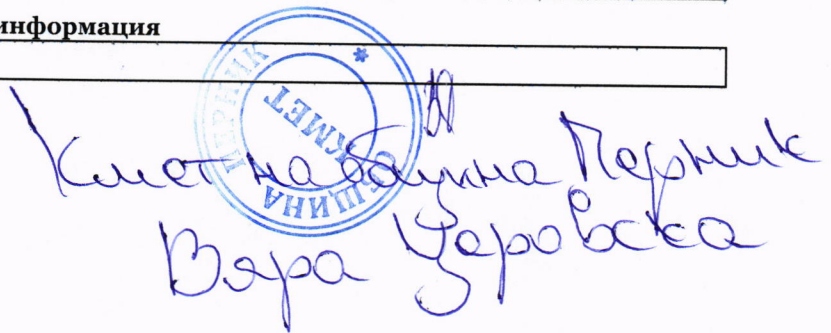 информация
ОБЩИНА ПЕРНИК
КМЕТ
Кмет на община Перник
Вяра Церовска